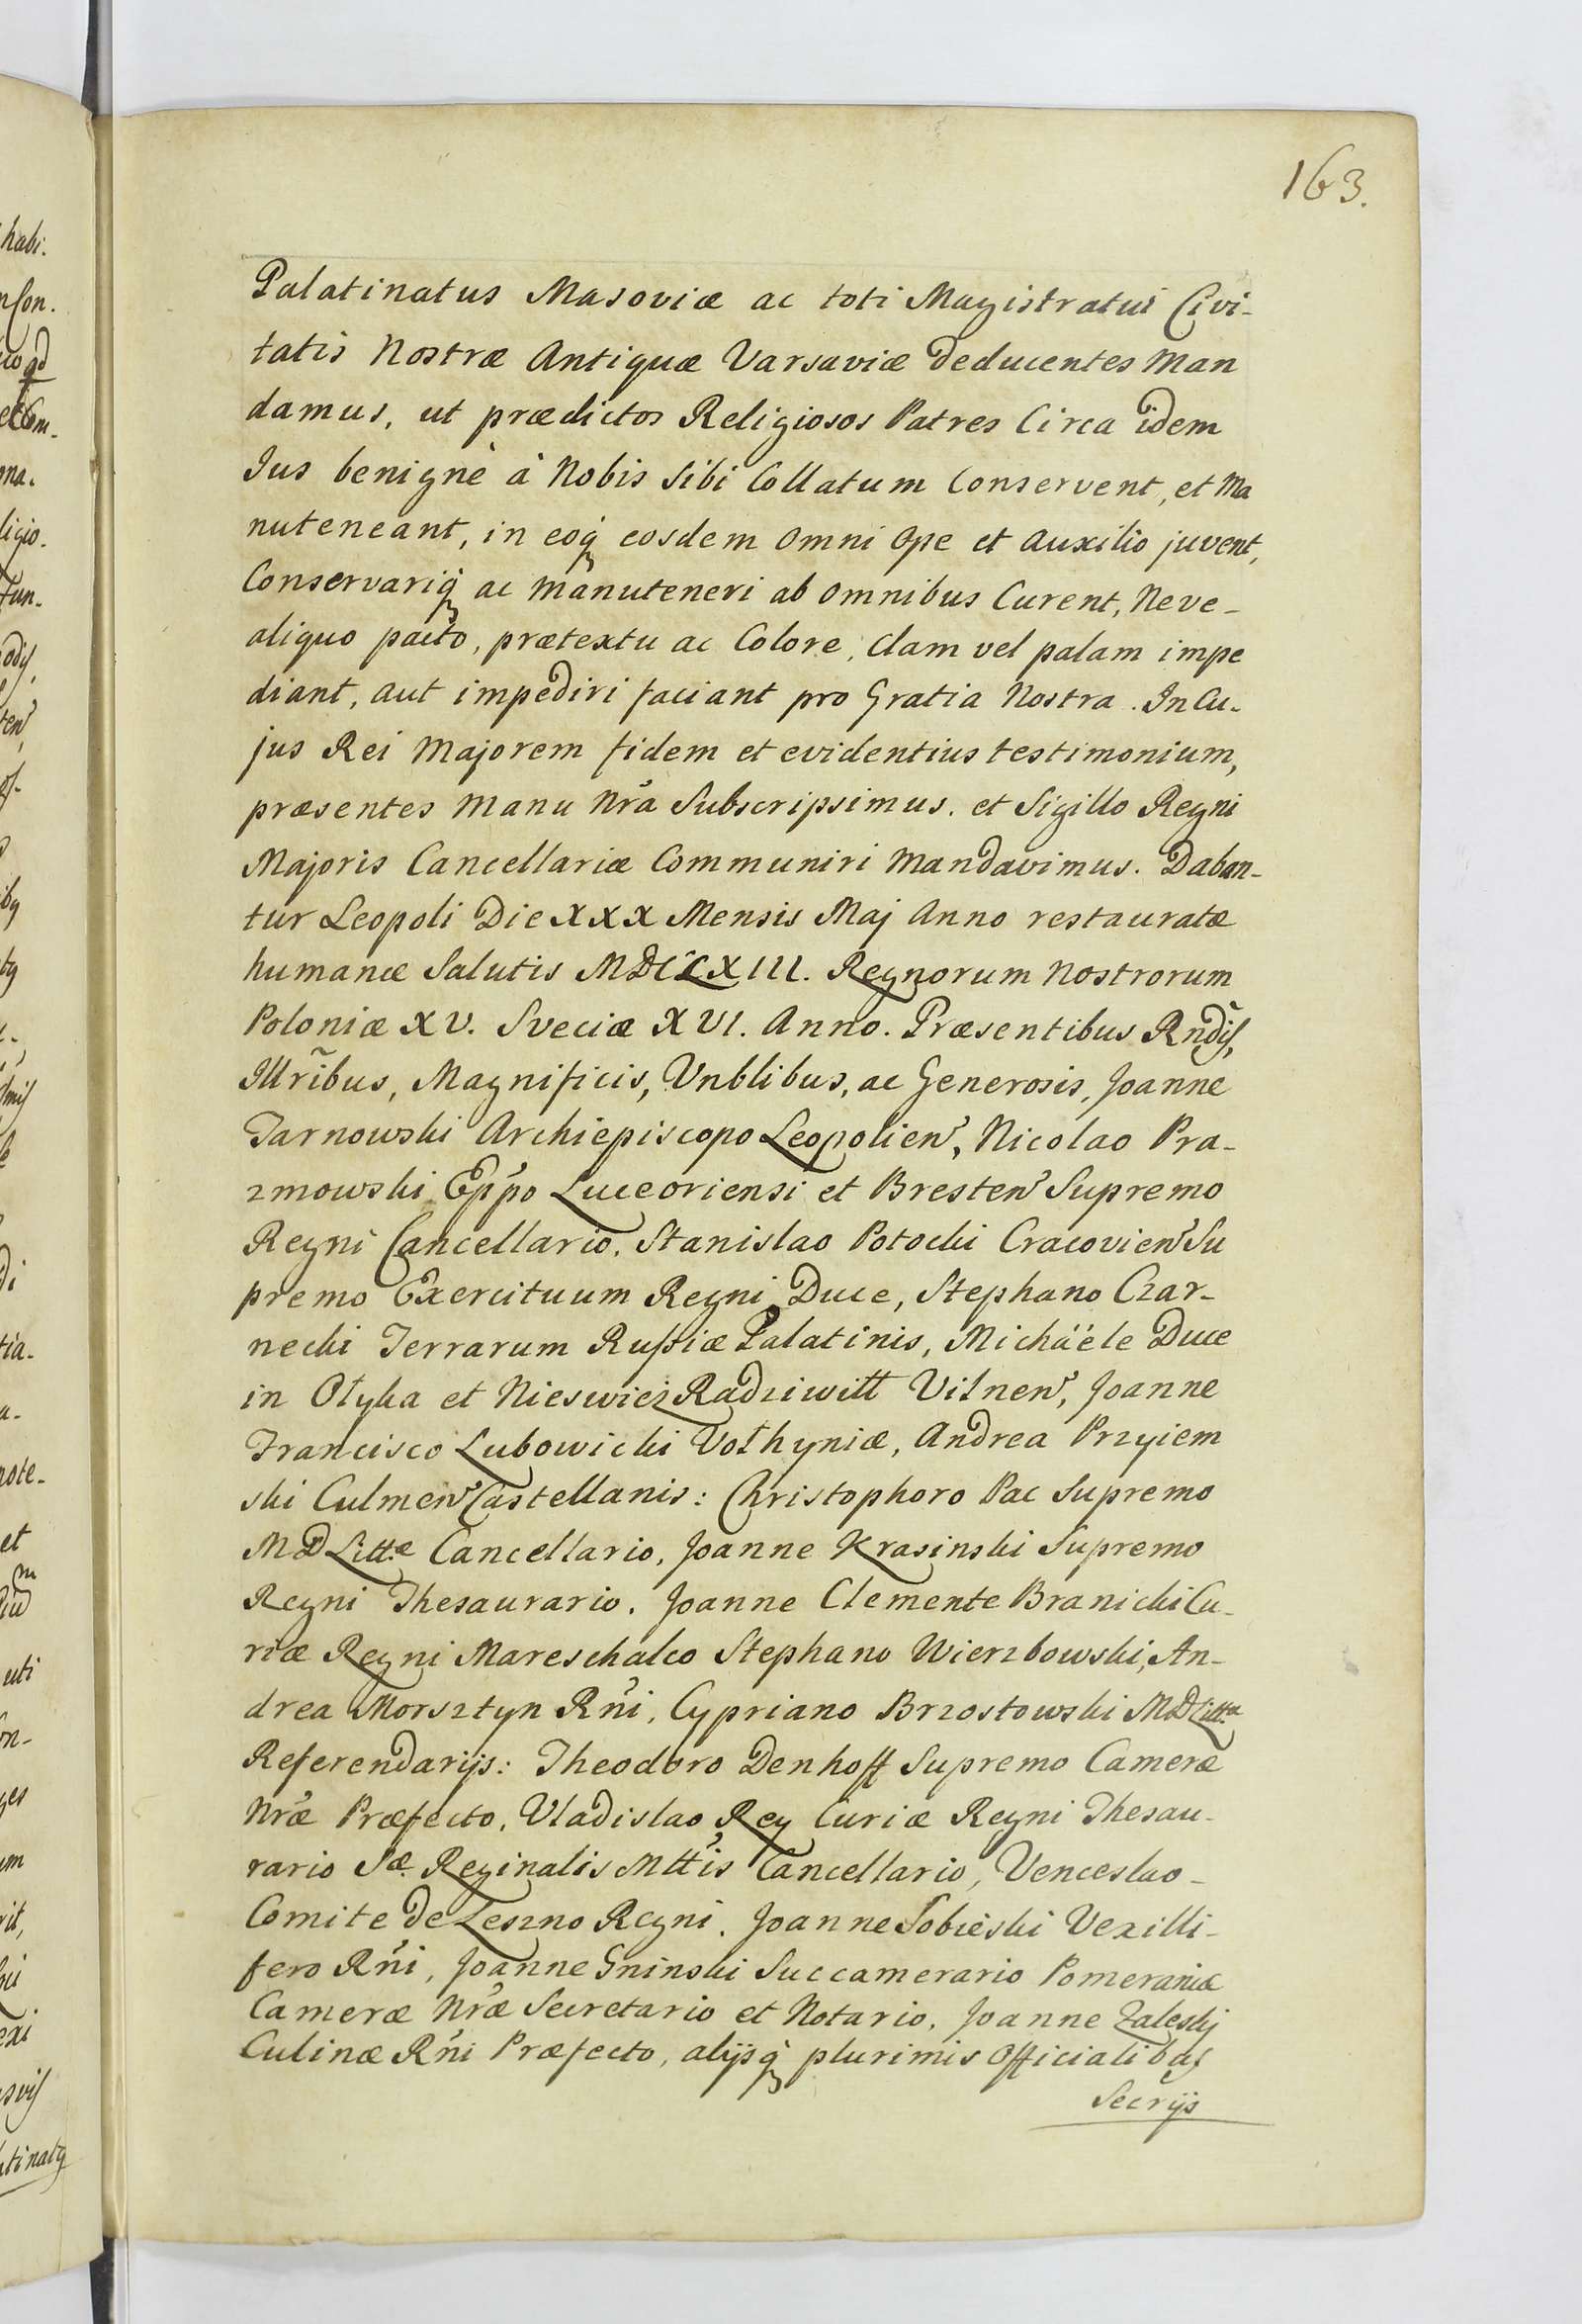 163.
Palatinatus Masoviæ ac toti Magistratui Civi-
tatis Nostræ Antiquæ Varsaviæ deducentes Man
damus, ut prædictos Religiosos Patres Circa idem
Jus benignè à Nobis Sibi Collatum Conservent, et Ma
nuteneant, in eoq́ eosdem omni ope et auxilio juvent,
Conservariq́ ac manuteneri ab omnibus Curent, Neve-
aliquo pacto, prætextu ac Colore, Clam vel palam impe
diant, aut impediri faciant pro Gratia Nostra. In Cu-
jus Rei Majorem fidem et evidentius testimonium,
præsentes Manu Nrã Subscripsimus. et Sigillo Regni
Majoris Cancellariæ Communiri Mandavimus. Daban-
tur Leopoli Die XXX Mensis Maj Anno restauratæ
humanæ Salutis MDCLXIII. Regnorum Nostrorum
Poloniæ XV. Sveciæ XVI. Anno. Præsentibus Rndĩs,
Illrĩbus, Magnificis, Vnblibus, ac Generosis, Joanne
Tarnowski Archiepiscopo Leopolien̉, Nicolao Pra-
zmowski Epp̉o Luceoriensi et Bresten̉ Supremo
Regni Cancellario. Stanislao Potocki Cracovien̉ Su
premo Exercituum Regni Duce, Stephano Czar-
necki Terrarum Russiæ Palatinis, Michäele Duce
in Ołyka et Nieswiez Radziwiłł Vilnen̉, Joanne
Francisco Lubowicki Vołhyniæ, Andrea Przyiem
ski Culmen̉ Castellanis: Christophoro Pac Supremo
MD Litt.æ Cancellario, Joanne Krasinski Supremo
Regni Thesaurario. Joanne Clemente Branicki Cu-
riæ Regni Mareschalco Stephano Wierzbowski, An-
drea Morsztyn Rn̉i, Cypriano Brzostowski MD Litt.æ
Referendarijs: Theodoro Denhoff Supremo Cameræ
Nr̉æ Præfecto, Vladislao Rey Curiæ Regni Thesau-
rario S.æ Reginalis Mttis̉ Cancellario, Venceslao-
Comite de Leszno Regni. Joanne Sobieski Vexilli-
fero Rn̉i, Joanne Gninski Succamerario Pomeraniæ
Cameræ Nr̉æ Secretario et Notario, Joanne Zaleskj
Culinæ Rn̉i Præfecto, alijsq́ plurimis Officialibus
Secrijs